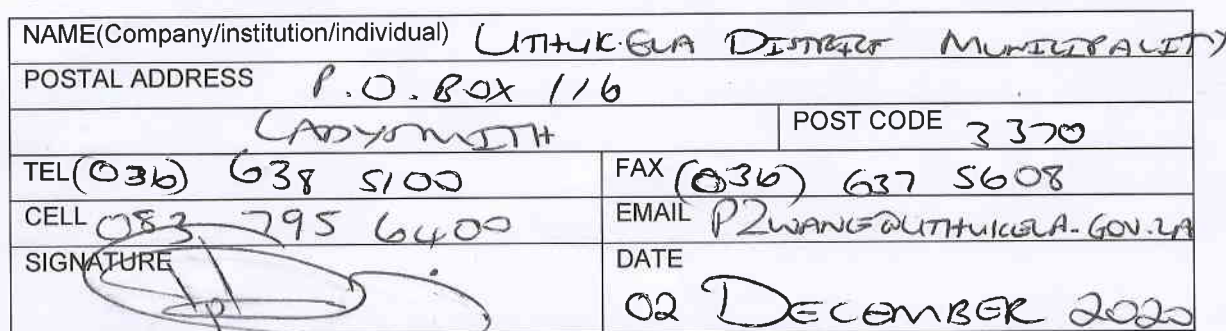 NAME(Company/institution/individual) UTHUKELA DISTRICT MUNICIPALITY
POSTAL ADDRESS P.O. BOX 116
LADYSMITH POST CODE 3370
TEL (036) 638 5100 FAX (036) 637 5608
CELL 083 795 6400 EMAIL PZWANE@UTHUKELA.GOV.ZA
SIGNATURE DATE
02 DECEMBER 2020